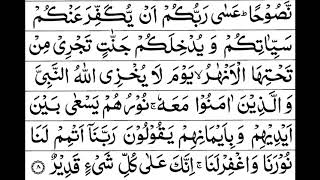 نَّصُوۡحًا ؕ عَسٰى رَبُّكُمۡ اَنۡ يُّكَفِّرَ عَنۡكُمۡ
سَيِّاٰتِكُمۡ وَيُدۡخِلَكُمۡ جَنّٰتٍ تَجۡرِىۡ مِنۡ
تَحۡتِهَا الۡاَنۡهٰرُ ۙ يَوۡمَ لَا يُخۡزِى اللّٰهُ النَّبِىَّ
وَالَّذِيۡنَ اٰمَنُوۡا مَعَهٗ ۚ نُوۡرُهُمۡ يَسۡعٰى بَيۡنَ
اَيۡدِيۡهِمۡ وَبِاَيۡمَانِهِمۡ يَقُوۡلُوۡنَ رَبَّنَاۤ اَتۡمِمۡ لَنَا
نُوۡرَنَا وَاغۡفِرۡ لَنَا ۚ اِنَّكَ عَلٰى كُلِّ شَىۡءٍ قَدِيۡرٌ ﴿۸﴾